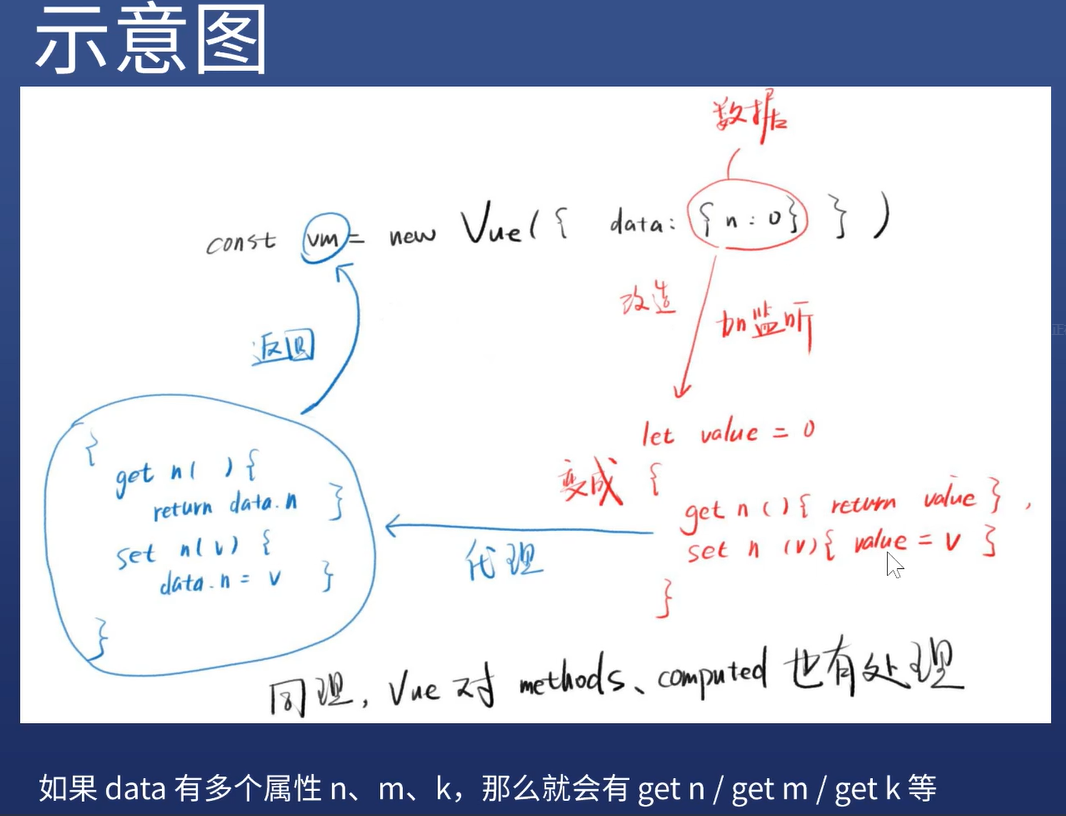 示意图
数据
const vm = new Vue({ data: { n : 0} } )
改造 加监听
返回
let value = 0
变成 {
get n () { return value } ,
set n (v){ value = v }
}
代理
{
get n( ) {
return data.n }
set n(v) {
data.n = v }
}
同理, Vue 对 methods、computed 也有处理
如果 data 有多个属性 n、m、k，那么就会有 get n / get m / get k 等